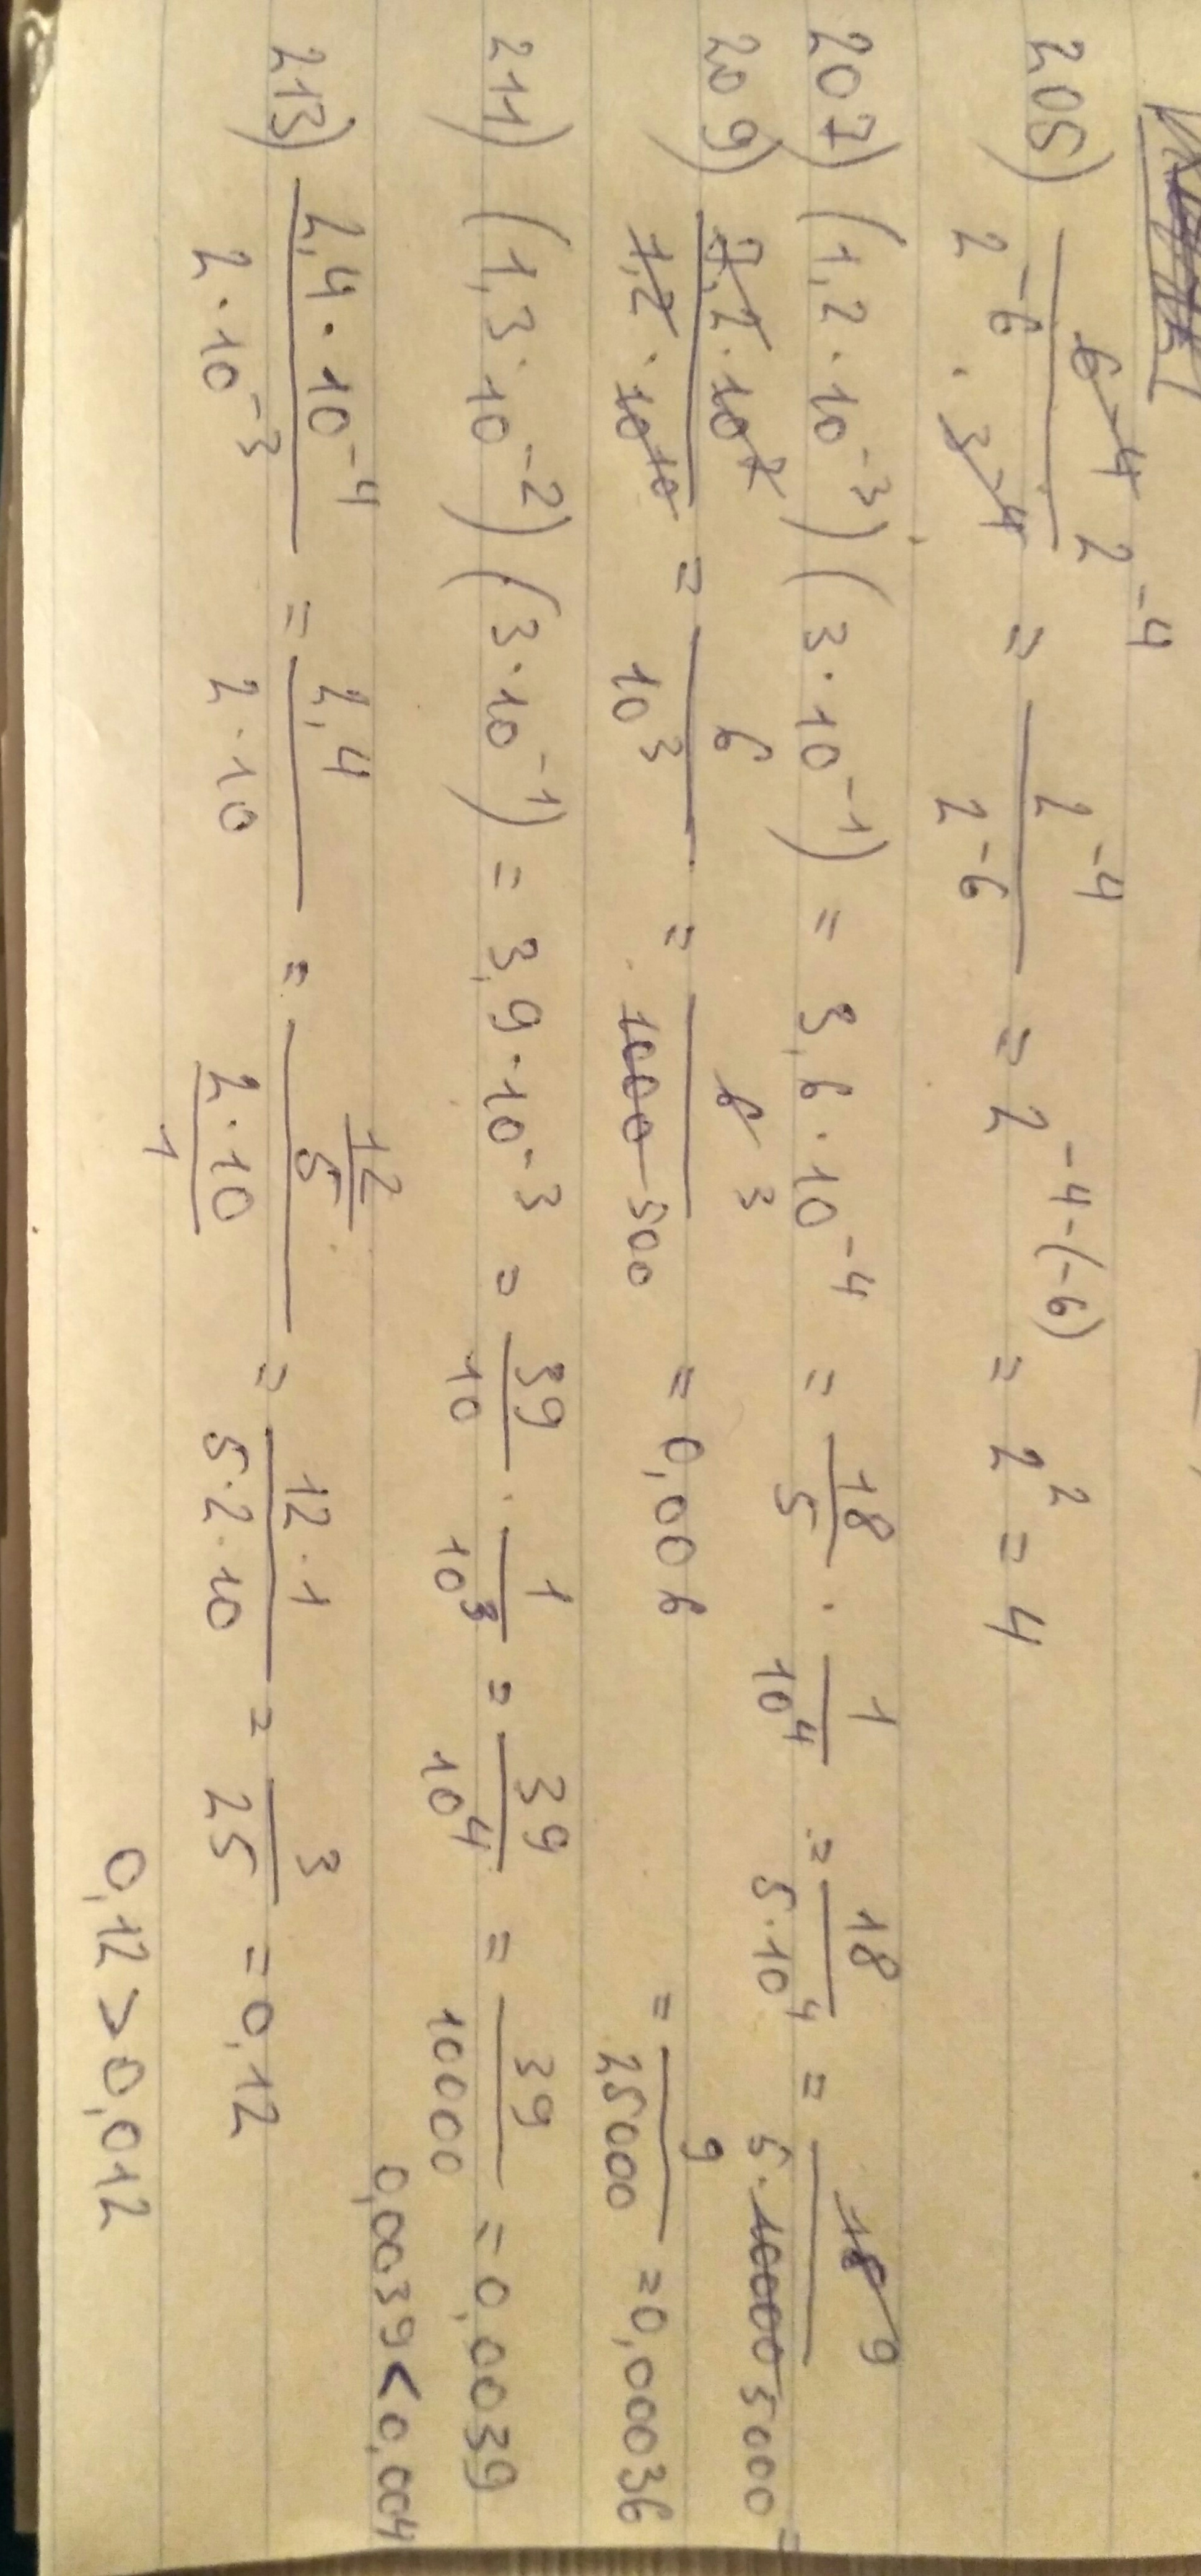 205) 6^-4 2^-4 / 2^-6 · 3^-4 = 2^-4 / 2^-6 = 2^-4-(-6) = 2^2 = 4
207) (1,2 · 10^-3)(3 · 10^-1) = 3,6 · 10^-4 = 18/5 · 1/10^4 = 18 / 5 · 10^4 = 18 9 / 5 · 10000 5000 =
= 9/25000 = 0,00036
209) 7,2 · 10^7 / 1,2 · 10^10 = 6/10^3 = 6 3 / 1000 500 = 0,006
211) (1,3 · 10^-2)(3 · 10^-1) = 3,9 · 10^-3 = 39/10 · 1/10^3 = 39/10^4 = 39/10000 = 0,0039
0,0039 < 0,004
213) 2,4 · 10^-4 / 2 · 10^-3 = 2,4 / 2 · 10 = 12/5 / 2 · 10/1 = 12 · 1 / 5 · 2 · 10 = 3/25 = 0,12
0,12 > 0,012